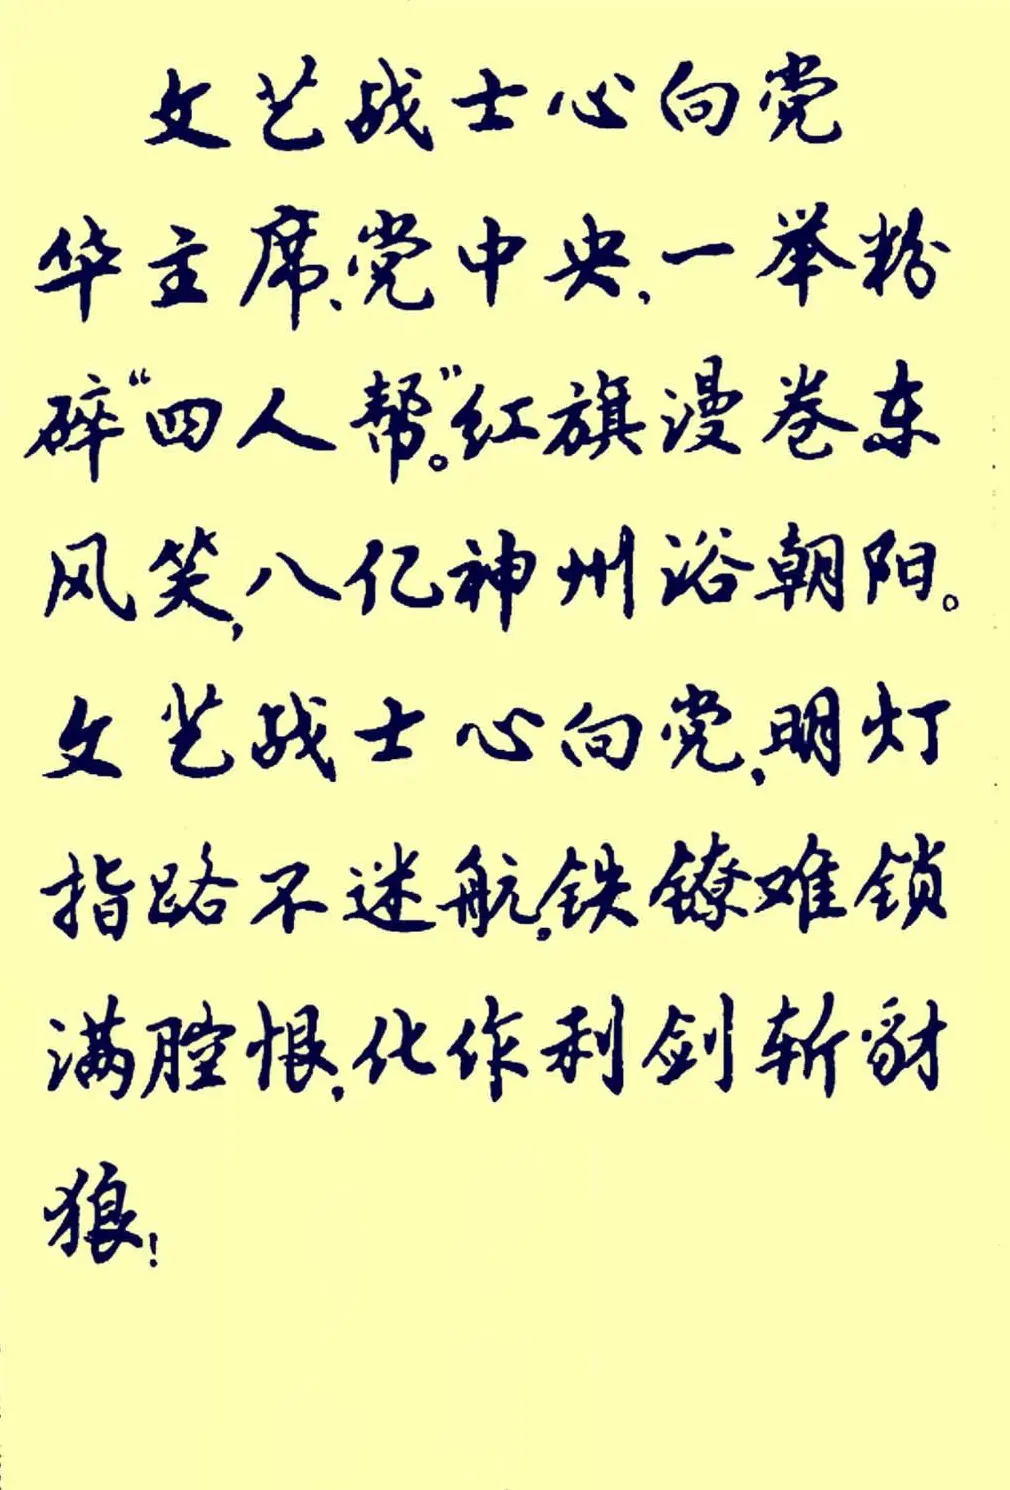 文艺战士心向党
华主席、党中央，一举粉
碎“四人帮”。红旗漫卷东
风笑，八亿神州浴朝阳。
文艺战士心向党，明灯
指路不迷航，铁镣难锁
满腔恨，化作利剑斩豺
狼！